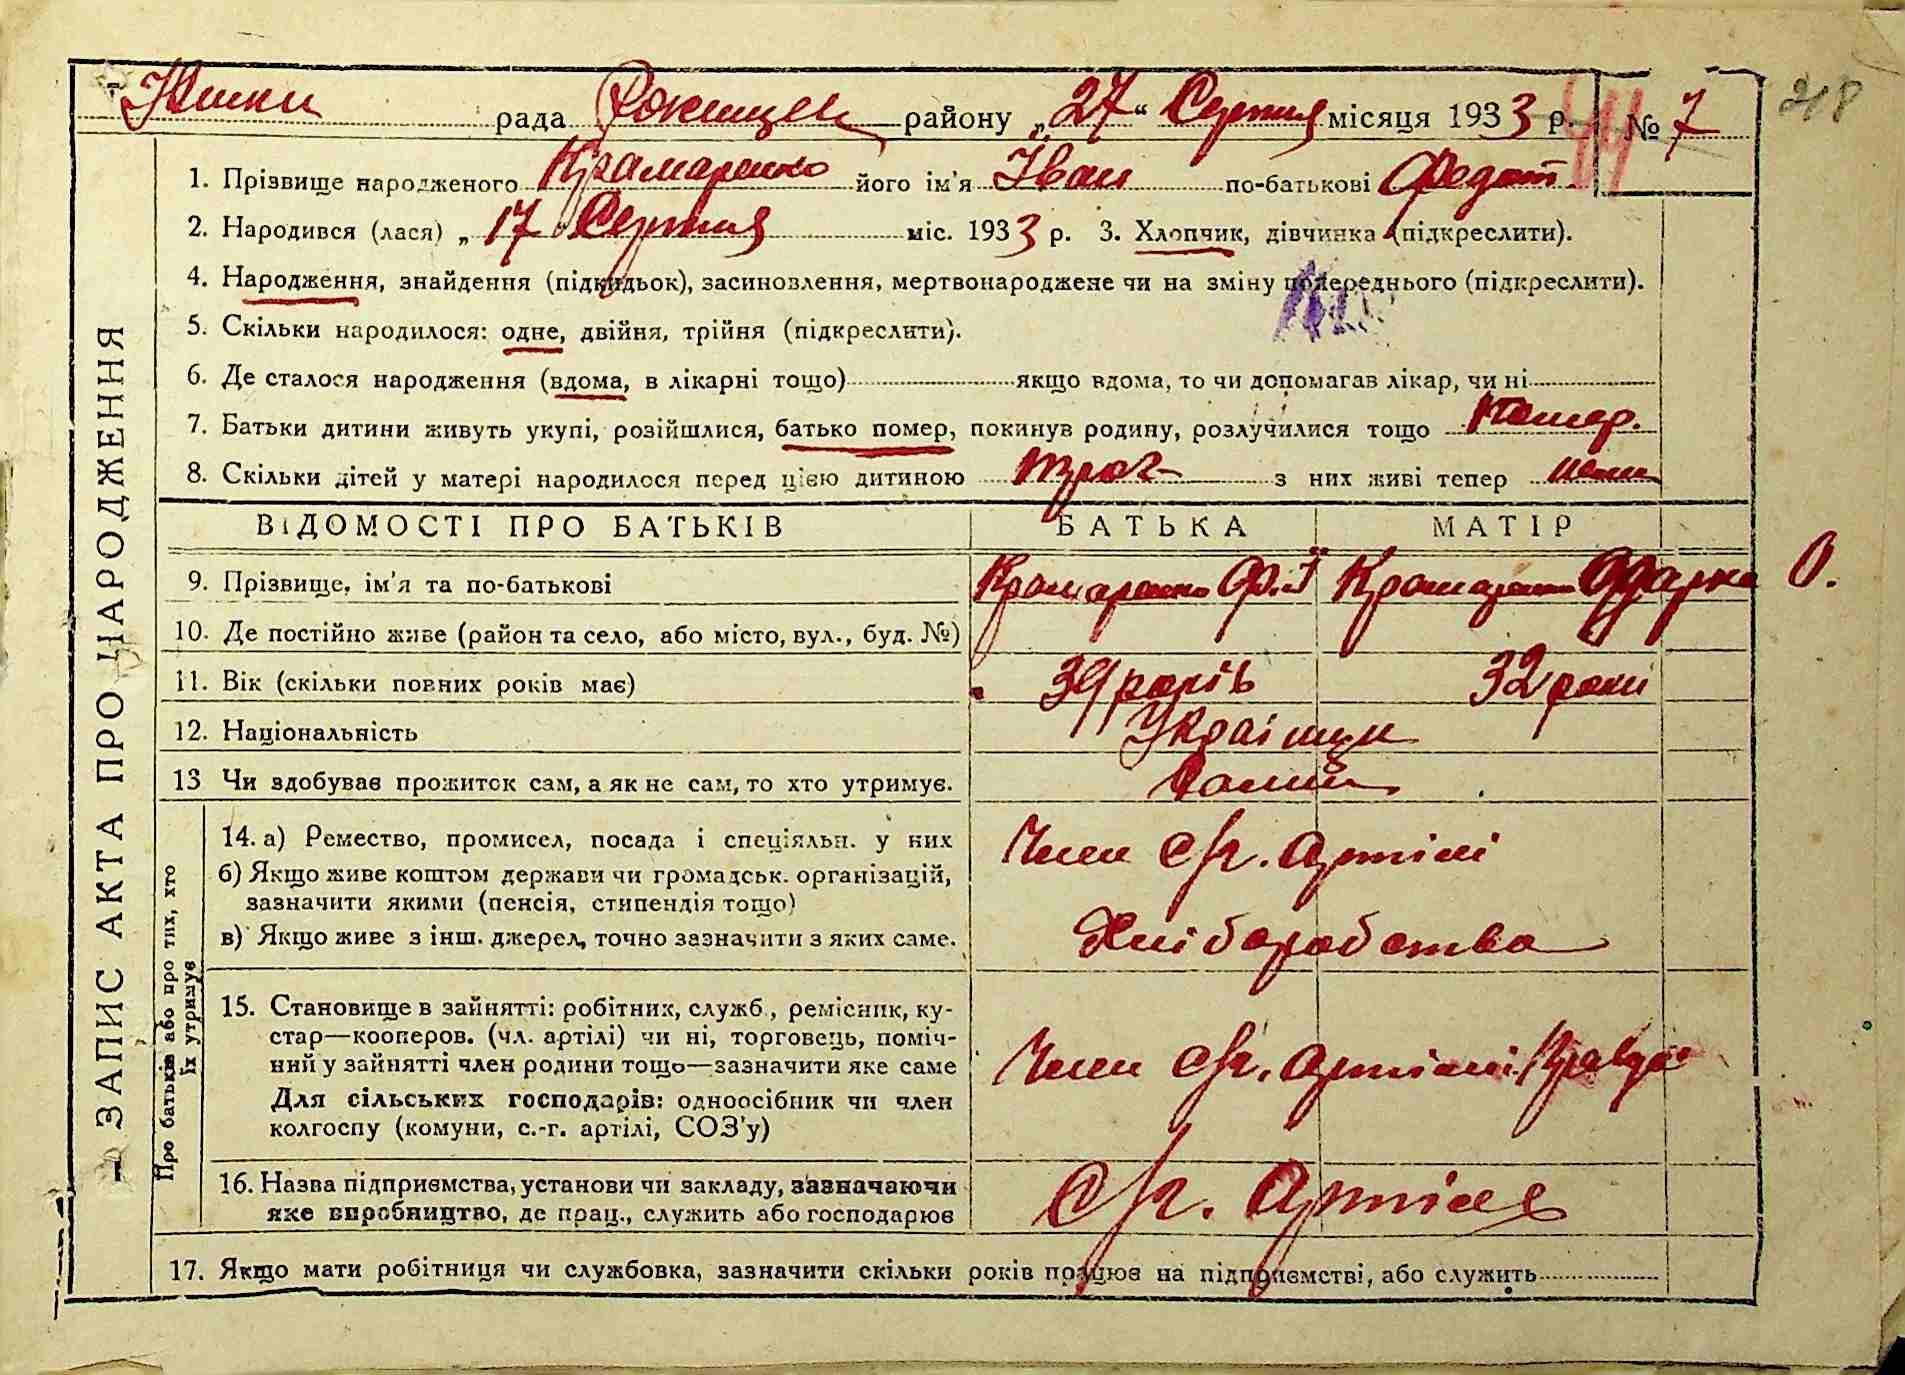 Юшки рада Рокищан району „27“ Серпня місяця 1933 р. № 7
218
44
1. Прізвище народженого Крамаренко його ім'я Іван по-батькові Федот.
2. Народився (лася) „17“ Серпня міс. 1933 р. 3. Хлопчик, дівчинка (підкреслити).
4. Народження, знайдення (підкидьок), засиновлення, мертвонароджене чи на зміну попереднього (підкреслити).
5. Скільки народилося: одне, двійня, трійня (підкреслити).
6. Де сталося народження (вдома, в лікарні тощо) якщо вдома, то чи допомагав лікар, чи ні
7. Батьки дитини живуть укупі, розійшлися, батько помер, покинув родину, розлучилися тощо Помер.
8. Скільки дітей у матері народилося перед цією дитиною троє з них живі тепер
ВІДОМОСТІ ПРО БАТЬКІВ БАТЬКА МАТІР
9. Прізвище, ім'я та по-батькові Крамаренко Ф. І Крамаренко Одарка О.
10. Де постійно живе (район та село, або місто, вул., буд. №)
11. Вік (скільки повних років має) 39 років 32 роки
12. Національність Українці
13 Чи здобував прожиток сам, а як не сам, то хто утримує. Самі
14. а) Ремество, промисел, посада і спеціяльн. у них Член с/г. Артілі
б) Якщо живе коштом держави чи громадськ. організацій,
зазначити якими (пенсія, стипендія тощо)
в) Якщо живе з інш. джерел, точно зазначити з яких саме. Хліборобства
15. Становище в зайнятті: робітник, служб., ремісник, ку-
стар—кооперов. (чл. артілі) чи ні, торговець, поміч-
ний у зайнятті член родини тощо—зазначити яке саме Член с/г. Артілі
Для сільських господарів: одноосібник чи член
колгоспу (комуни, с.-г. артілі, СОЗ'у)
16. Назва підприємства, установи чи закладу, зазначаючи
яке виробництво, де прац., служить або господарює С/г. Артіль
17. Якщо мати робітниця чи службовка, зазначити скільки років працює на підприємстві, або служить
— ЗАПИС АКТА ПРО НАРОДЖЕННЯ
Про батьків або про тих, хто
їх утримує